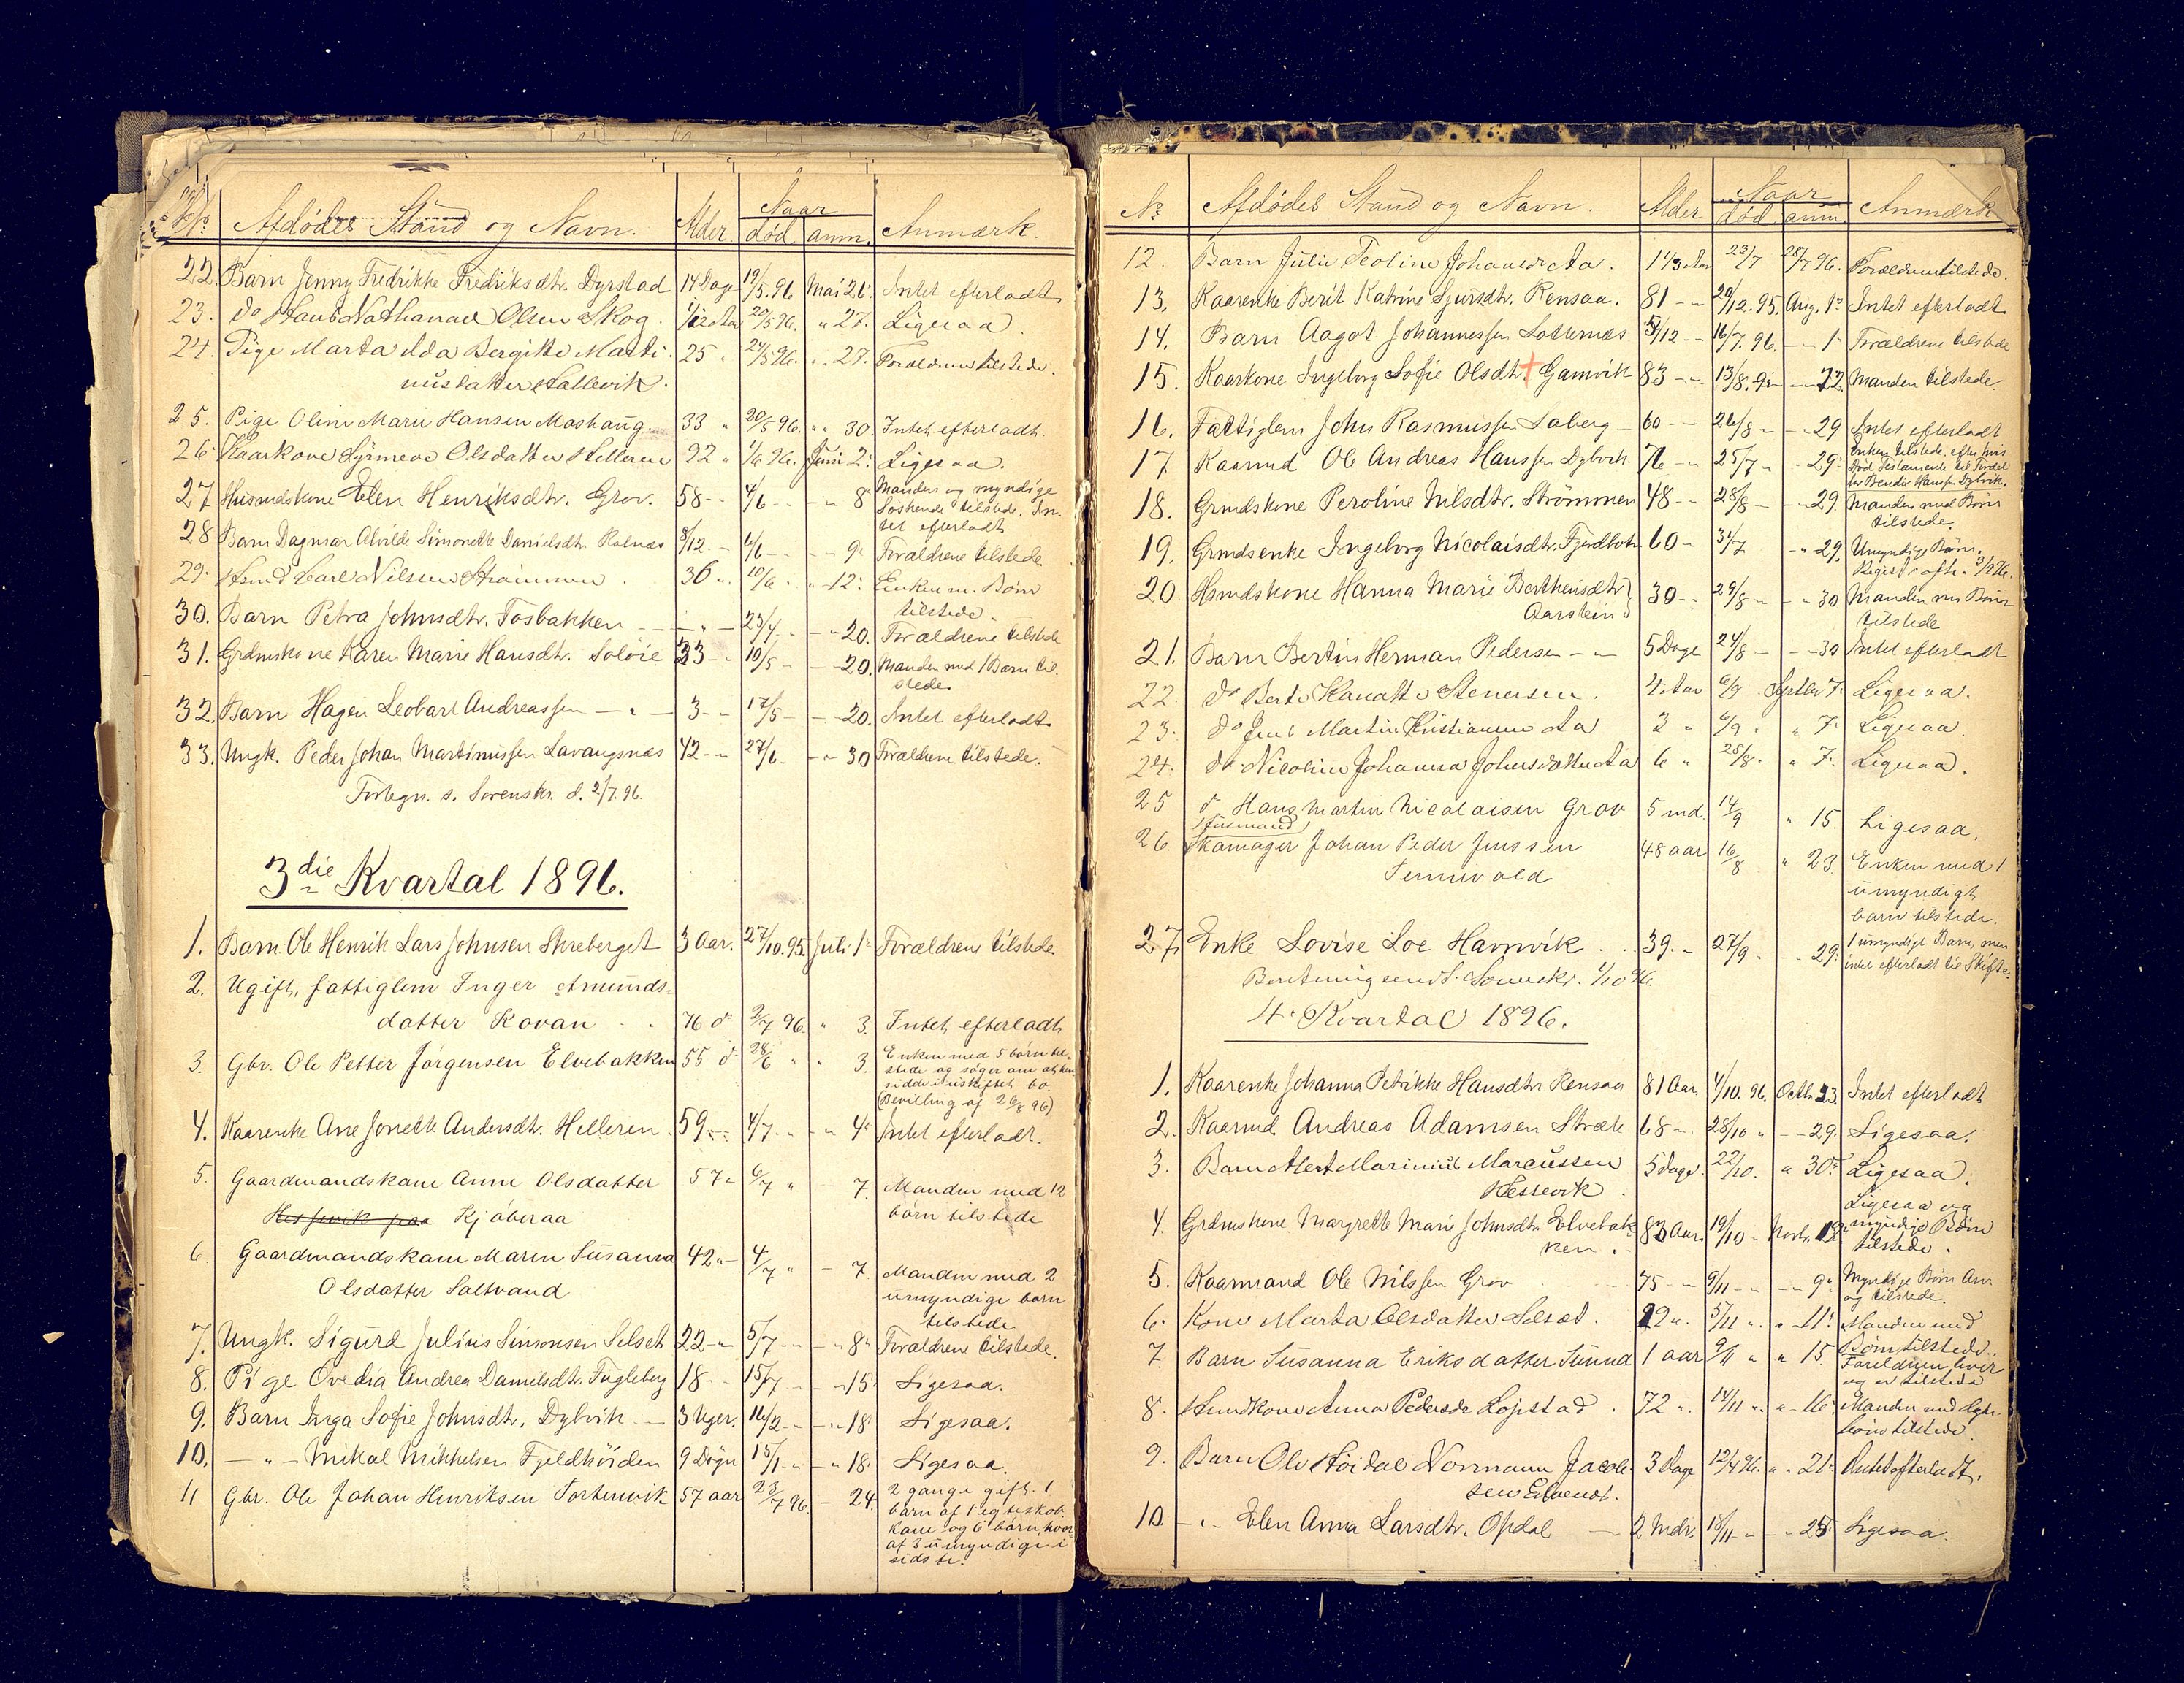 No. Afdødes Stand og Navn. Alder. Naar død anm. Anmærk.
22. Barn Jenny Fredrikke Fredriksdtr. Dyrstad 14 Dage 19/5.96 Mai 26. Intet efterladt
23. do Hans Nathanael Olsen Skog. 1/12 Aar 20/5 96. " 27. Ligesaa.
24. Pige Marta Ilda Bergitte Marti- 25 " 24/5 96. " 27. Forældrene tilstede.
nusdatter Hallevik.
25. Pige Oline Marie Hansen Moshaug. 33 " 20/5 96. " 30. Intet efterladt.
26. Kaarkone Sÿrineve Olsdatter Helleren 92 " 1/6 96. Juni 2. Ligesaa.
27. Husmdskone Elen Henriksdtr. Grov. 58 - - 4/6 - - - " 8. Manden og myndige
Søskende tilstede. In-
tet efterladt
28. Barn Dagmar Alvilde Simonette Danielsdtr. Rolnæs 8/12 - 4/6 - - - 9. Forældrene tilstede
29. Husmd Carl Nilsen Strømmen. 36 " 10/6 " " 12. Enken m. Børn
tilstede.
30. Barn Petra Johnsdtr. Fosbakken - " - 23/4 - - 20. Forældrene tilstede
31. Grdmskone Karen Marie Hansdtr. Soløie 33 - " 10/5 - - - 20. Manden med 1 Barn til-
stede.
32. Barn Hagen Leobart Andreassen - " - 3 - - 17/5 - - - 20. Intet efterladt
33. Ungk. Peder Johan Martinussen Lavangsnæs 42 - " 27/6 - - " 30 Forældrene tilstede.
Forlegn. s. Sorenskr. d. 2/7.96.
3die Kvartal 1896.
1. Barn Ole Henrik Lars Johnsen Skreberget 3 Aar. 27/10.95. Juli 1. Forældrene tilstede
2. Ugift, fattiglem Inger Amunds-
datter Rovan . . 76 do 2/7 96 " 3. Intet efterladt
3. Gbr. Ole Petter Jørgensen Elvebakken 55 do 28/6 " " 3. Enken med 5 børn til-
stede og søger om at hen-
sidde i uskiftet bo.
(Bevilling af 26/8 96)
4. Kaarenke Ane Jonette Andersdtr. Helleren. 59 - - 4/7 - - - " 4. Intet efterladt.
5. Gaardmandskane Anne Olsdatter 57 " 6/7 " - 7. Manden med 12
Kjøberaa børn tilstede
6. Gaardmandskane Maren Susanna 42 " - 4/7 " - 7. Manden med 2
Olsdatter Saltvand umyndige børn
tilstede
7. Ungk. Sigurd Julius Simonsen Selset 22 - " 5/7 - - - " 8. Forældrene tilstede.
8. Pige Ovedia Andrea Danielsdtr. Fugleberg 18 - - 15/7 - - " 15. Ligesaa.
9. Barn Inga Sofie Johnsdtr. Dybvik - 3 Uger. 16/2 - - - " 18 Ligesaa.
10. - " - Mikal Mikkelsen Fjeldhøiden 9 Døgn 15/1 - " - " 18. Ligesaa.
11 Gbr. Ole Johan Henriksen Tortenvik 57 aar 23/7 96. - 24. 2 gange gift. 1
barn af 1ste egteskab.
kane og 6 børn, hvor-
af 3 umyndige i
sidste.
No. Afdødes Stand og Navn. Alder Naar død anm. Anmærk
12. Barn Julie Teoline Johansdr Aa. 1 1/3 Aar 23/7 25/7 96. Forældrene tilstede.
13. Kaarenke Berit Katrine Sjursdtr. Rensaa. 81 - " 20/12.95. Aug. 1. Intet efterladt
14. Barn Aagot Johannessen 5/12 - - 16/7.96. - - 1. Forældrene tilstede
15. Kaarkone Ingeborg Sofie Olsdtr. + Gamvik 83 - " 13/8. - - 22. Manden tilstede.
16. Fattiglem John Rasmussen Saberg - 60 - - 26/8 " - " 29 Intet efterladt
17 Kaarmd Ole Andreas Hanssen Dybvik 76 - " 25/7 " - " 29. Enken tilstede. efter hvis
Død Testamente til Fordel
for Bendix Hanssen Dybvik.
18. Grmdskone Peroline Nilsdtr. Strømmen 48 - - 28/8 - - " 29. Manden med Børn
tilstede.
19. Grmdsenke Ingeborg Nicolaisdtr. Fjordbotn 60 - 31/7 - " 29. Umyndige Børn.
20. Hsmdskone Hanna Marie Berthensdtr 30 - - 29/8 " - " 30 Manden m Børn
Aarstein tilstede
21. Barn Bertin Herman Pedersen - " 5 Dage 24/8 - - " 30 Intet efterladt
22. do Berte Kanatte Stenersen. 4 Aar 6/9 Septbr 7. Ligesaa.
23. do Jens Martin Kristiansen Aa 3 " 6/9 " " 7. Ligesaa.
24. do Nicoline Johanna Johnsdatter Aa 6 " 28/8. " 7. Ligesaa.
25 do Hans Martin Nicolaisen Grov 5 md. 14/9 " 15. Ligesaa.
(Husmand)
26. Skomager Johan Peder Jenssen 48 aar 16/8 " 23. Enken med 1
Tennevold umyndigt
barn tilstede.
27. Enke Lovise Loe Havnvik . . 39. " 27/9 " - " 29. 1 umyndigt Barn, men
intet efterladt til Skifte.
Beretning sendt Sorenskr. 1/10 96.
4. Kvartal 1896.
1. Kaarenke Johanna Petrikke Hansdtr Rensaa 81 Aar 4/10.96. Octb. 23. Intet efterladt
2. Kaarmd. Andreas Adamsen Stræte 68 " 28/10 " - " 29. Ligesaa.
3. Barn Albert Marinius Marcussen 5 dage. 22/10. " 30. Ligesaa.
Hessevik.
4. Grdmskone Margrethe Marie Johnsdtr. Elvebak- 83 Aar 19/10 - Novb. Ligesaa og
ken. myndige Børn
tilstede.
5. Kaarmand Ole Nilssen Grov 75 - " 9/11 - - " 9. Myndige Børn
og tilstede.
6. Kone Marta Olsdatter Selsæt. 22 ". 5/11 ". " 11. Manden med
Børn tilstede.
7. Barn Susanna Eriksdatter Sunnd 1 aar 9/11 " " 15. Foreldrene lever
og er tilstede
8. Husmdkone Anna Pedersdr Lopstad . 72 ". 14/11 ". " 16. Manden med
børn tilstede.
9. Barn Ole Høidal Normann Jacob- 3 dage 12/4 96. " " 21. Intet efterladt.
sen
10. - " - Elen Anna Larsdtr. Opdal - 2 Mdr. 18/11 - - " 25. Ligesaa.